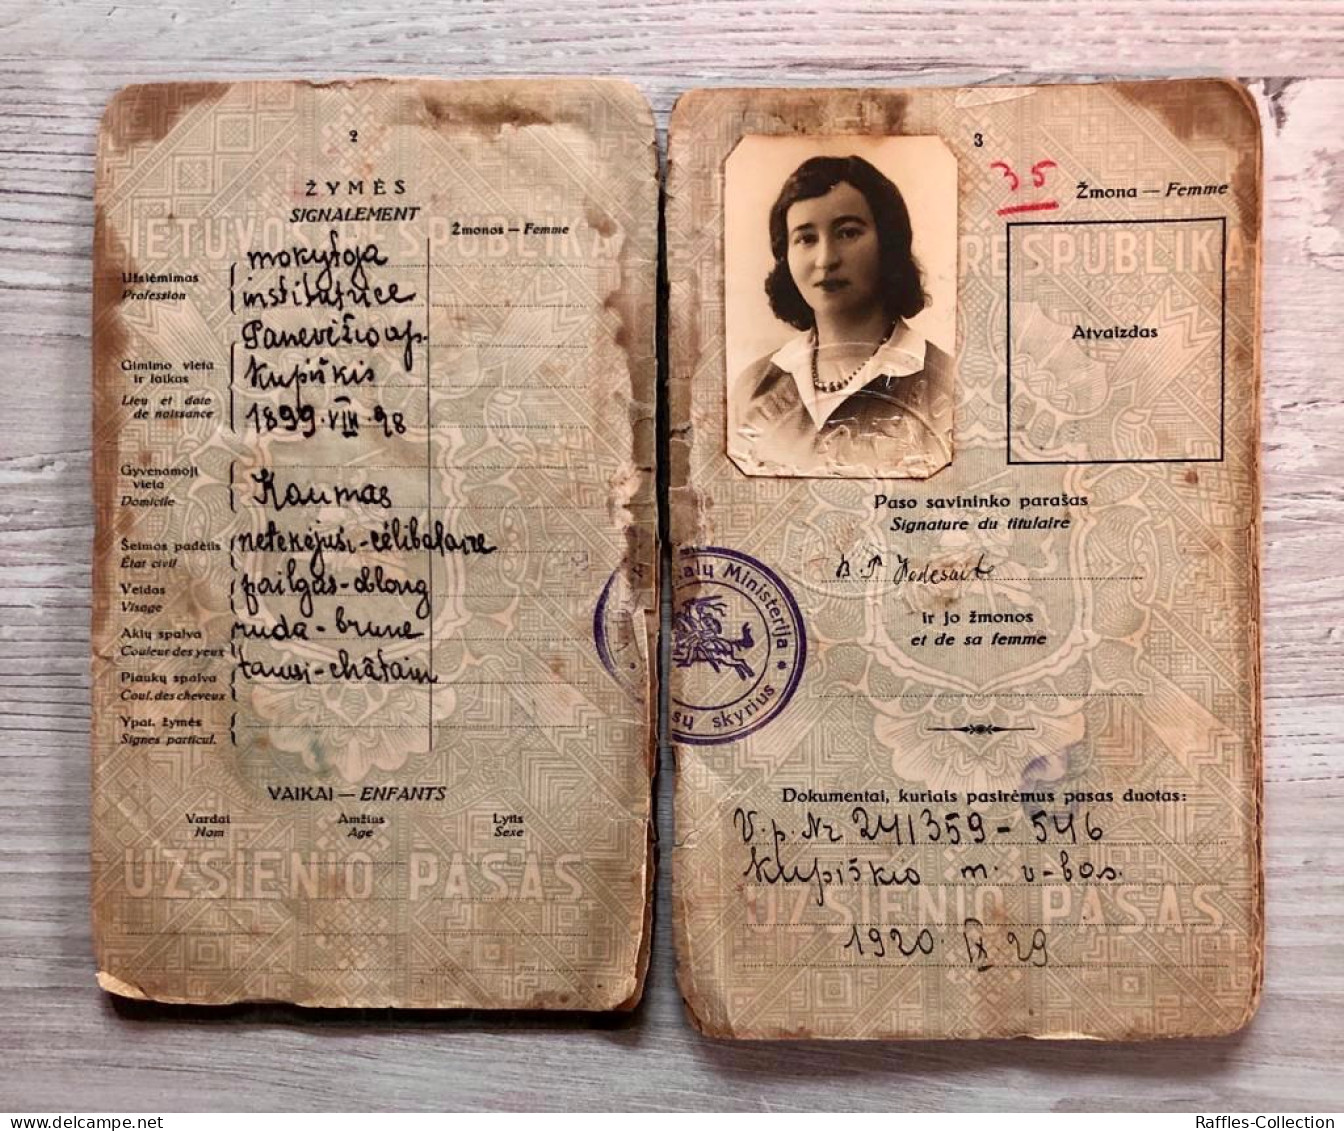 2
ŽYMĖS
SIGNALEMENT
Žmonos — Femme
LIETUVOS RESPUBLIKA
Užsiėmimas
Profession
mokytoja
institutrice
Gimimo vieta
ir laikas
Lieu et date
de naissance
Panevėžio ap.
Kupiškis
1899.VIII.28
Gyvenamoji
vieta
Domicile
Kaunas
Šeimos padėtis
État civil
netekėjusi-célibataire
Veidas
Visage
pailgas-oblong
Akių spalva
Couleur des yeux
ruda-brune
Plaukų spalva
Coul. des cheveux
tamsi-châtain
Ypat. žymės
Signes particul.
VAIKAI — ENFANTS
Vardai
Nom
Amžius
Age
Lytis
Sexe
UŽSIENIO PASAS
3
35
Žmona — Femme
RESPUBLIKA
Atvaizdas
Paso savininko parašas
Signature du titulaire
ir jo žmonos
et de sa femme
alų Ministerija
sų skyrius
Dokumentai, kuriais pasirėmus pasas duotas:
V.p. Nr 241359-546
Kupiškio m. v-bos.
UŽSIENIO PASAS
1920.IX 29
Raffles-Collection